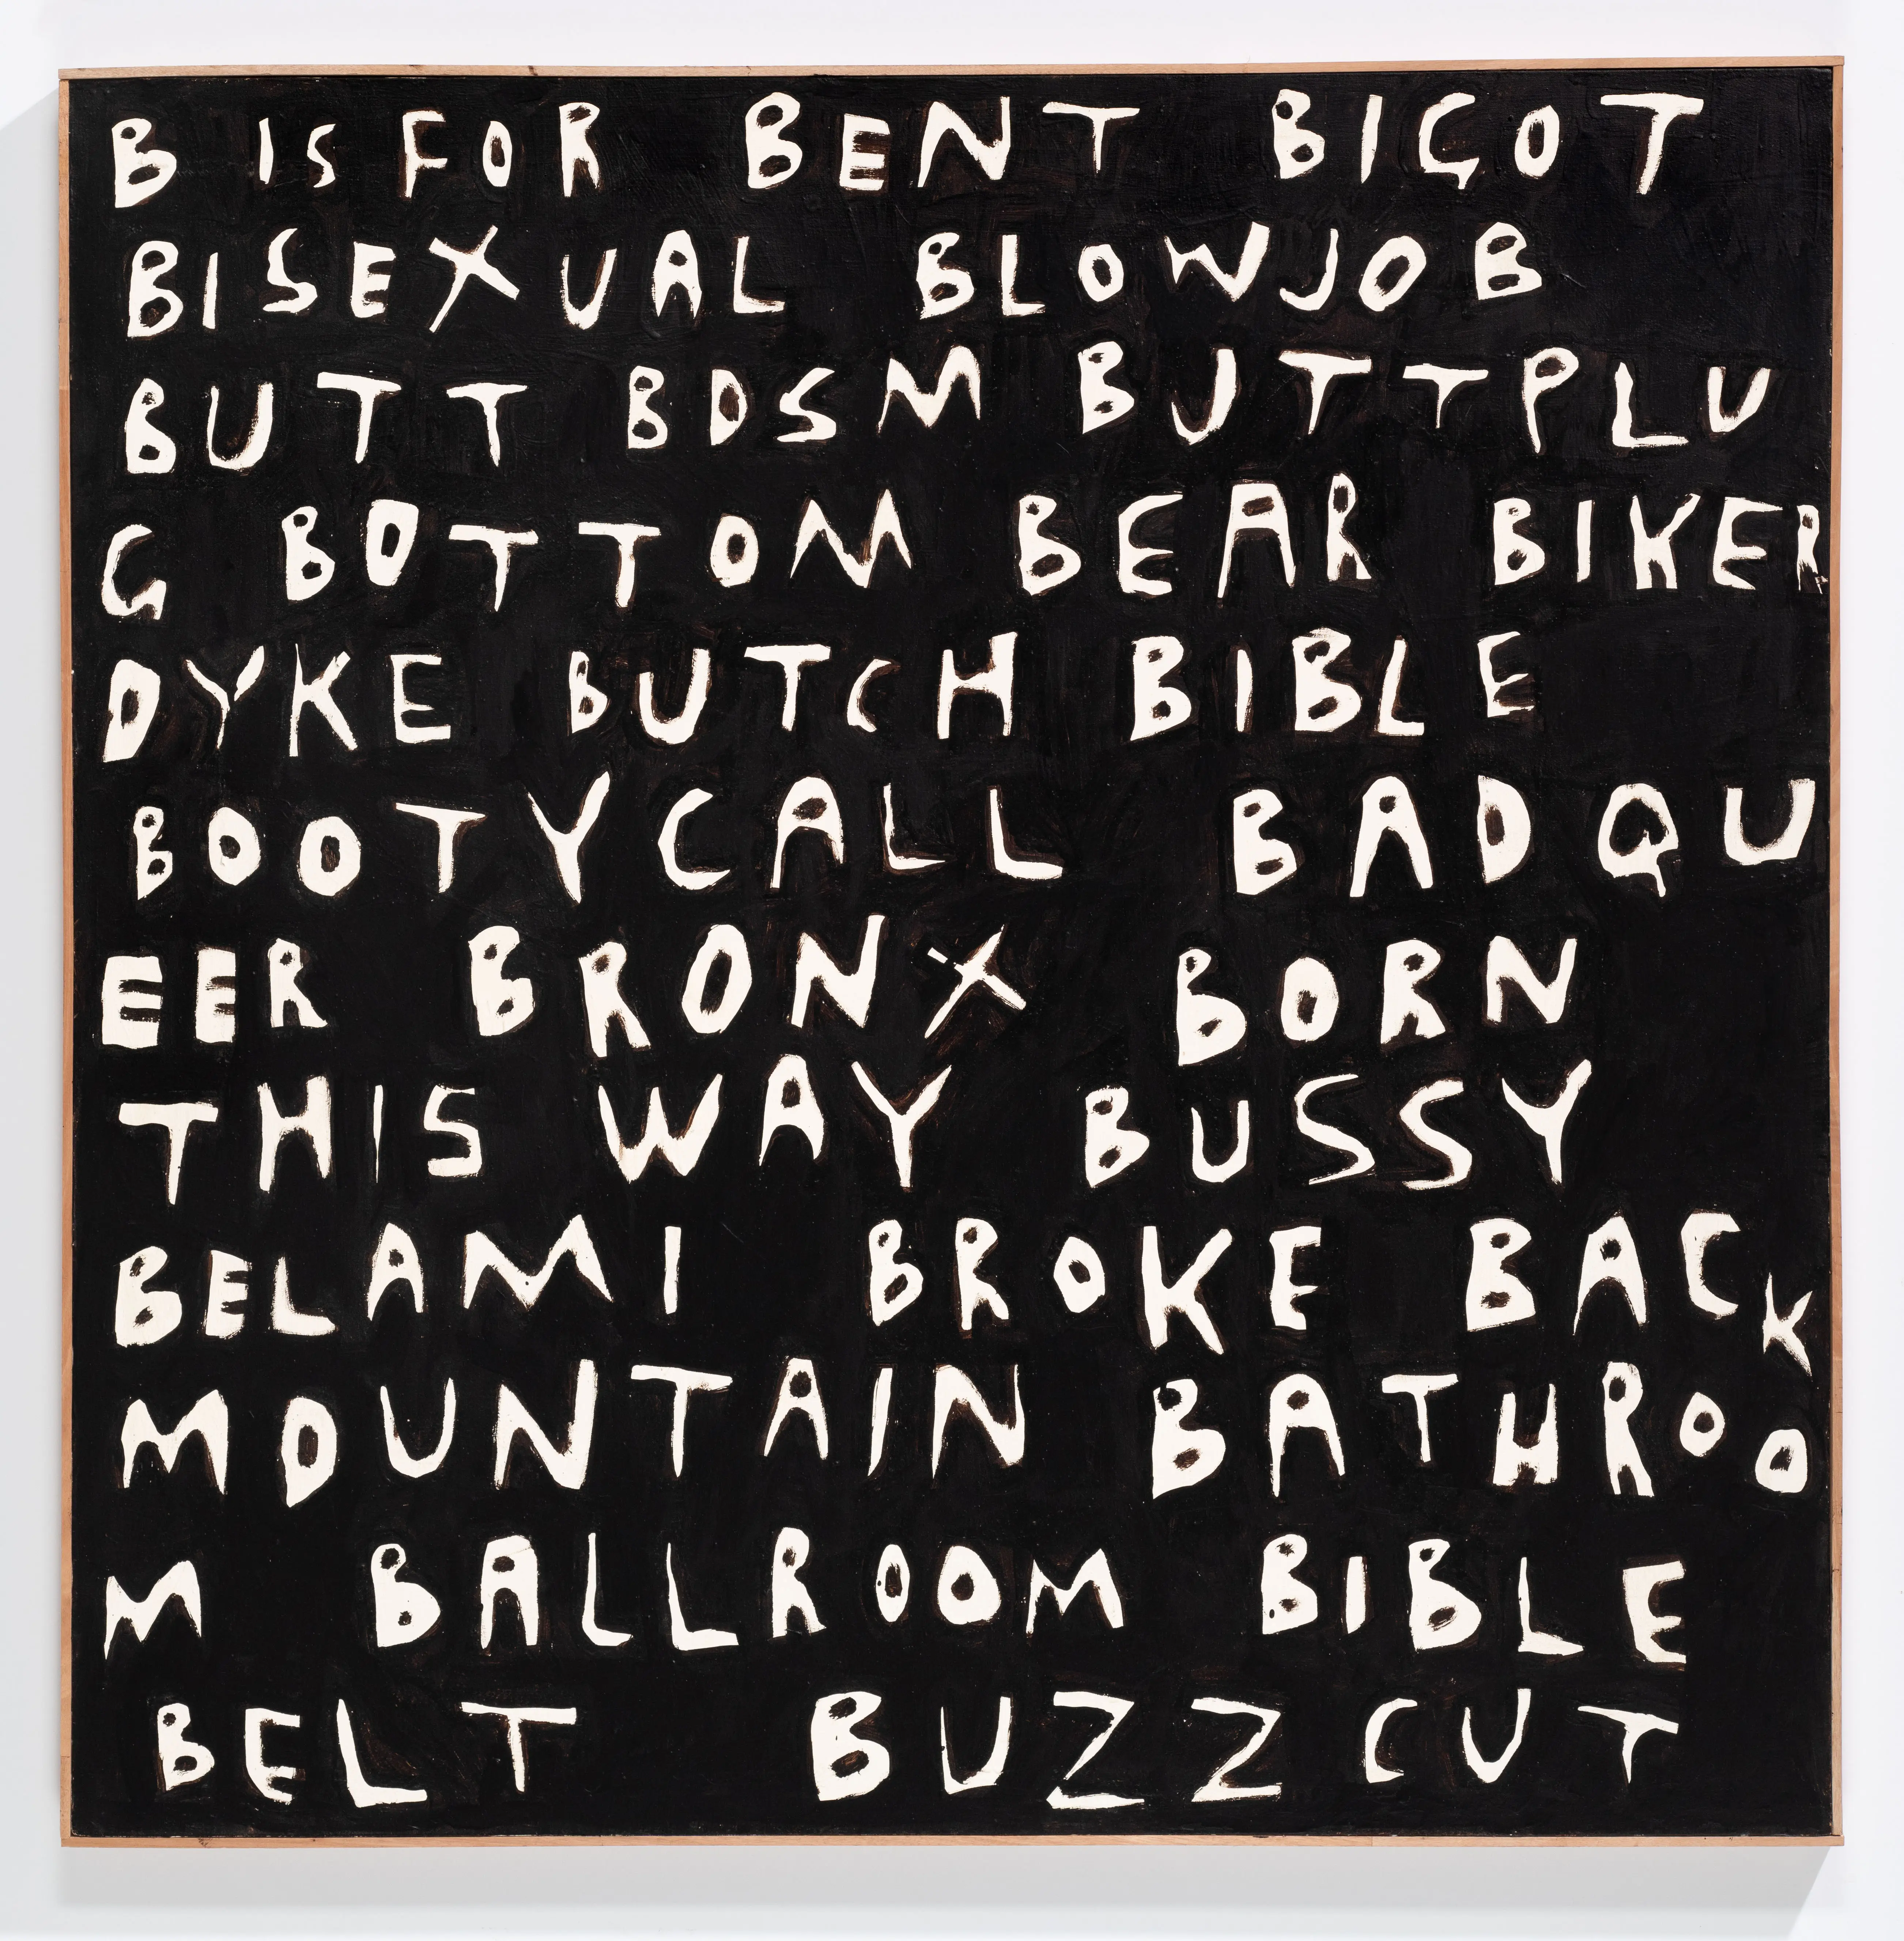 B IS FOR BENT BIGOT
BISEXUAL BLOWJOB
BUTT BDSM BUTTPLU
G BOTTOM BEAR BIKER
DYKE BUTCH BIBLE
BOOTYCALL BAD QU
EER BRONX BORN
THIS WAY BUSSY
BELAMI BROKE BACK
MOUNTAIN BATHROO
M BALLROOM BIBLE
BELT BUZZCUT